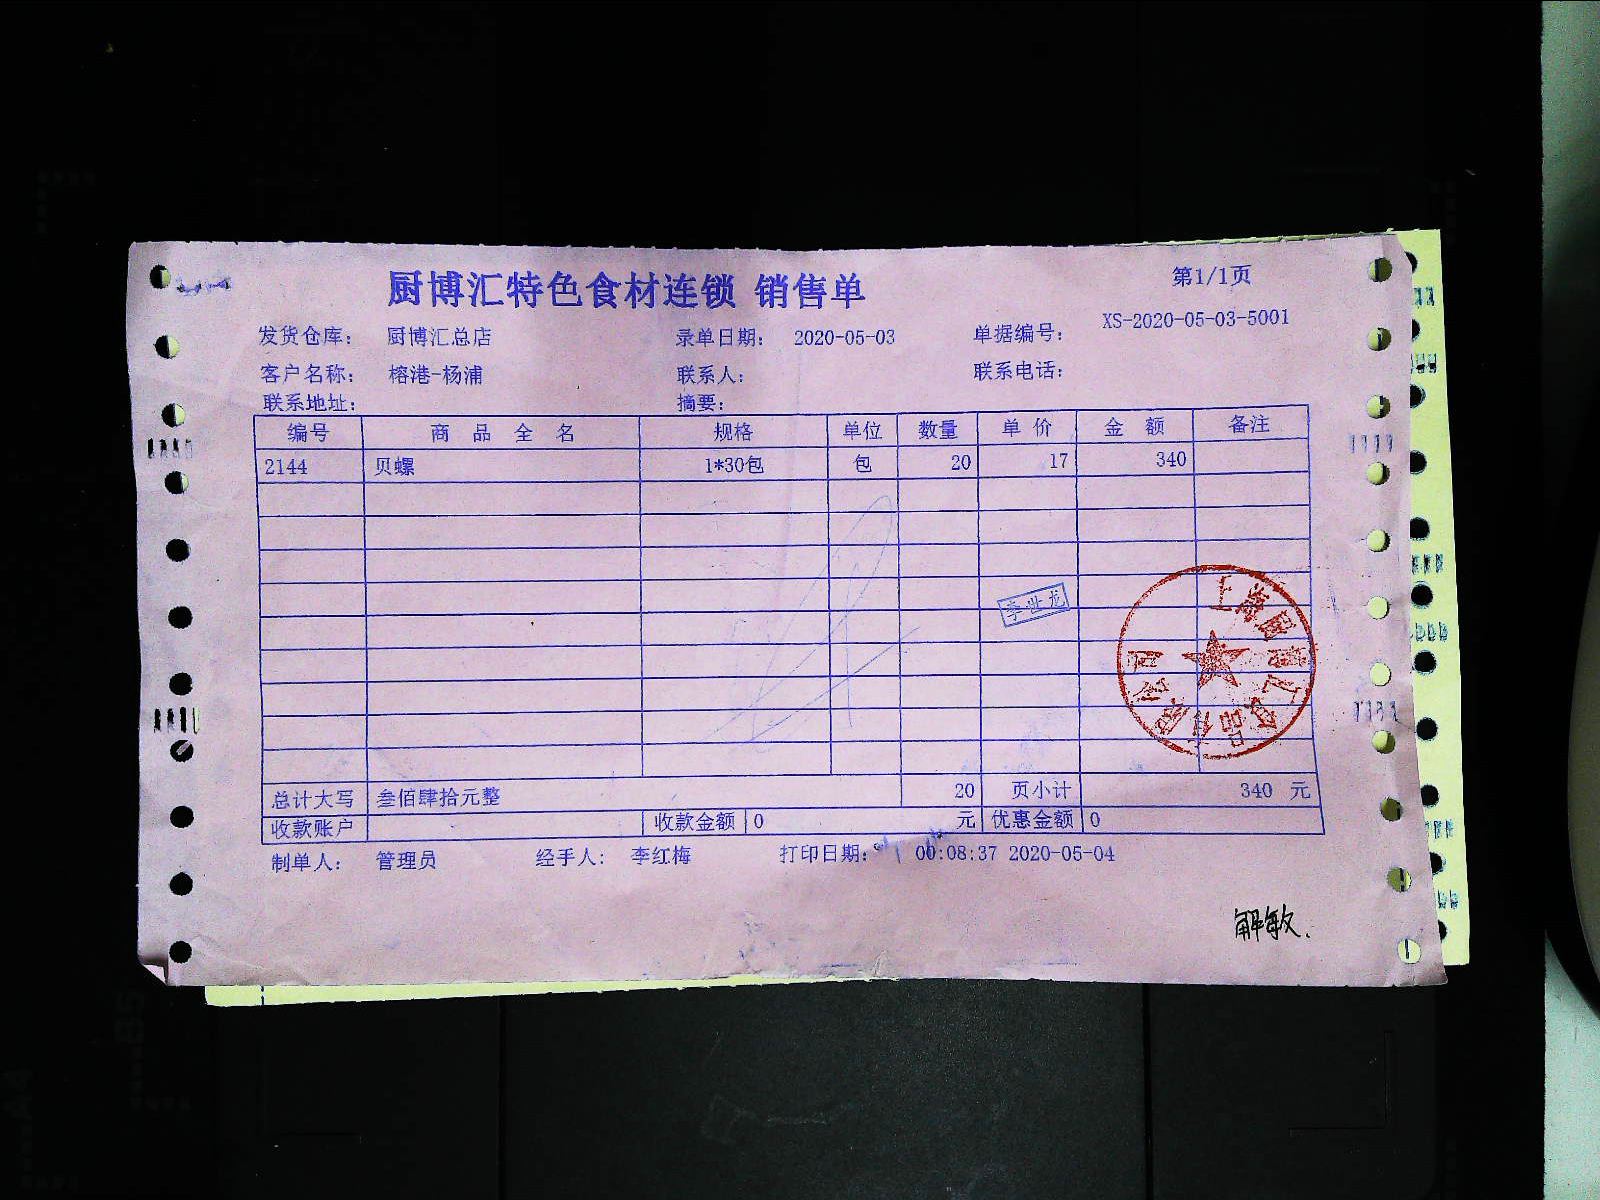 厨博汇特色食材连锁 销售单
第1/1页
发货仓库: 厨博汇总店 录单日期: 2020-05-03 单据编号: XS-2020-05-03-5001
客户名称: 榕港-杨浦 联系人: 联系电话:
联系地址: 摘要:
编号 商品全名 规格 单位 数量 单价 金额 备注
2144 贝螺 1*30包 包 20 17 340
李世龙
上海厨博汇食品有限公司
总计大写 叁佰肆拾元整 20 页小计 340 元
收款账户 收款金额 0 元 优惠金额 0
制单人: 管理员 经手人: 李红梅 打印日期: 00:08:37 2020-05-04
解敏.